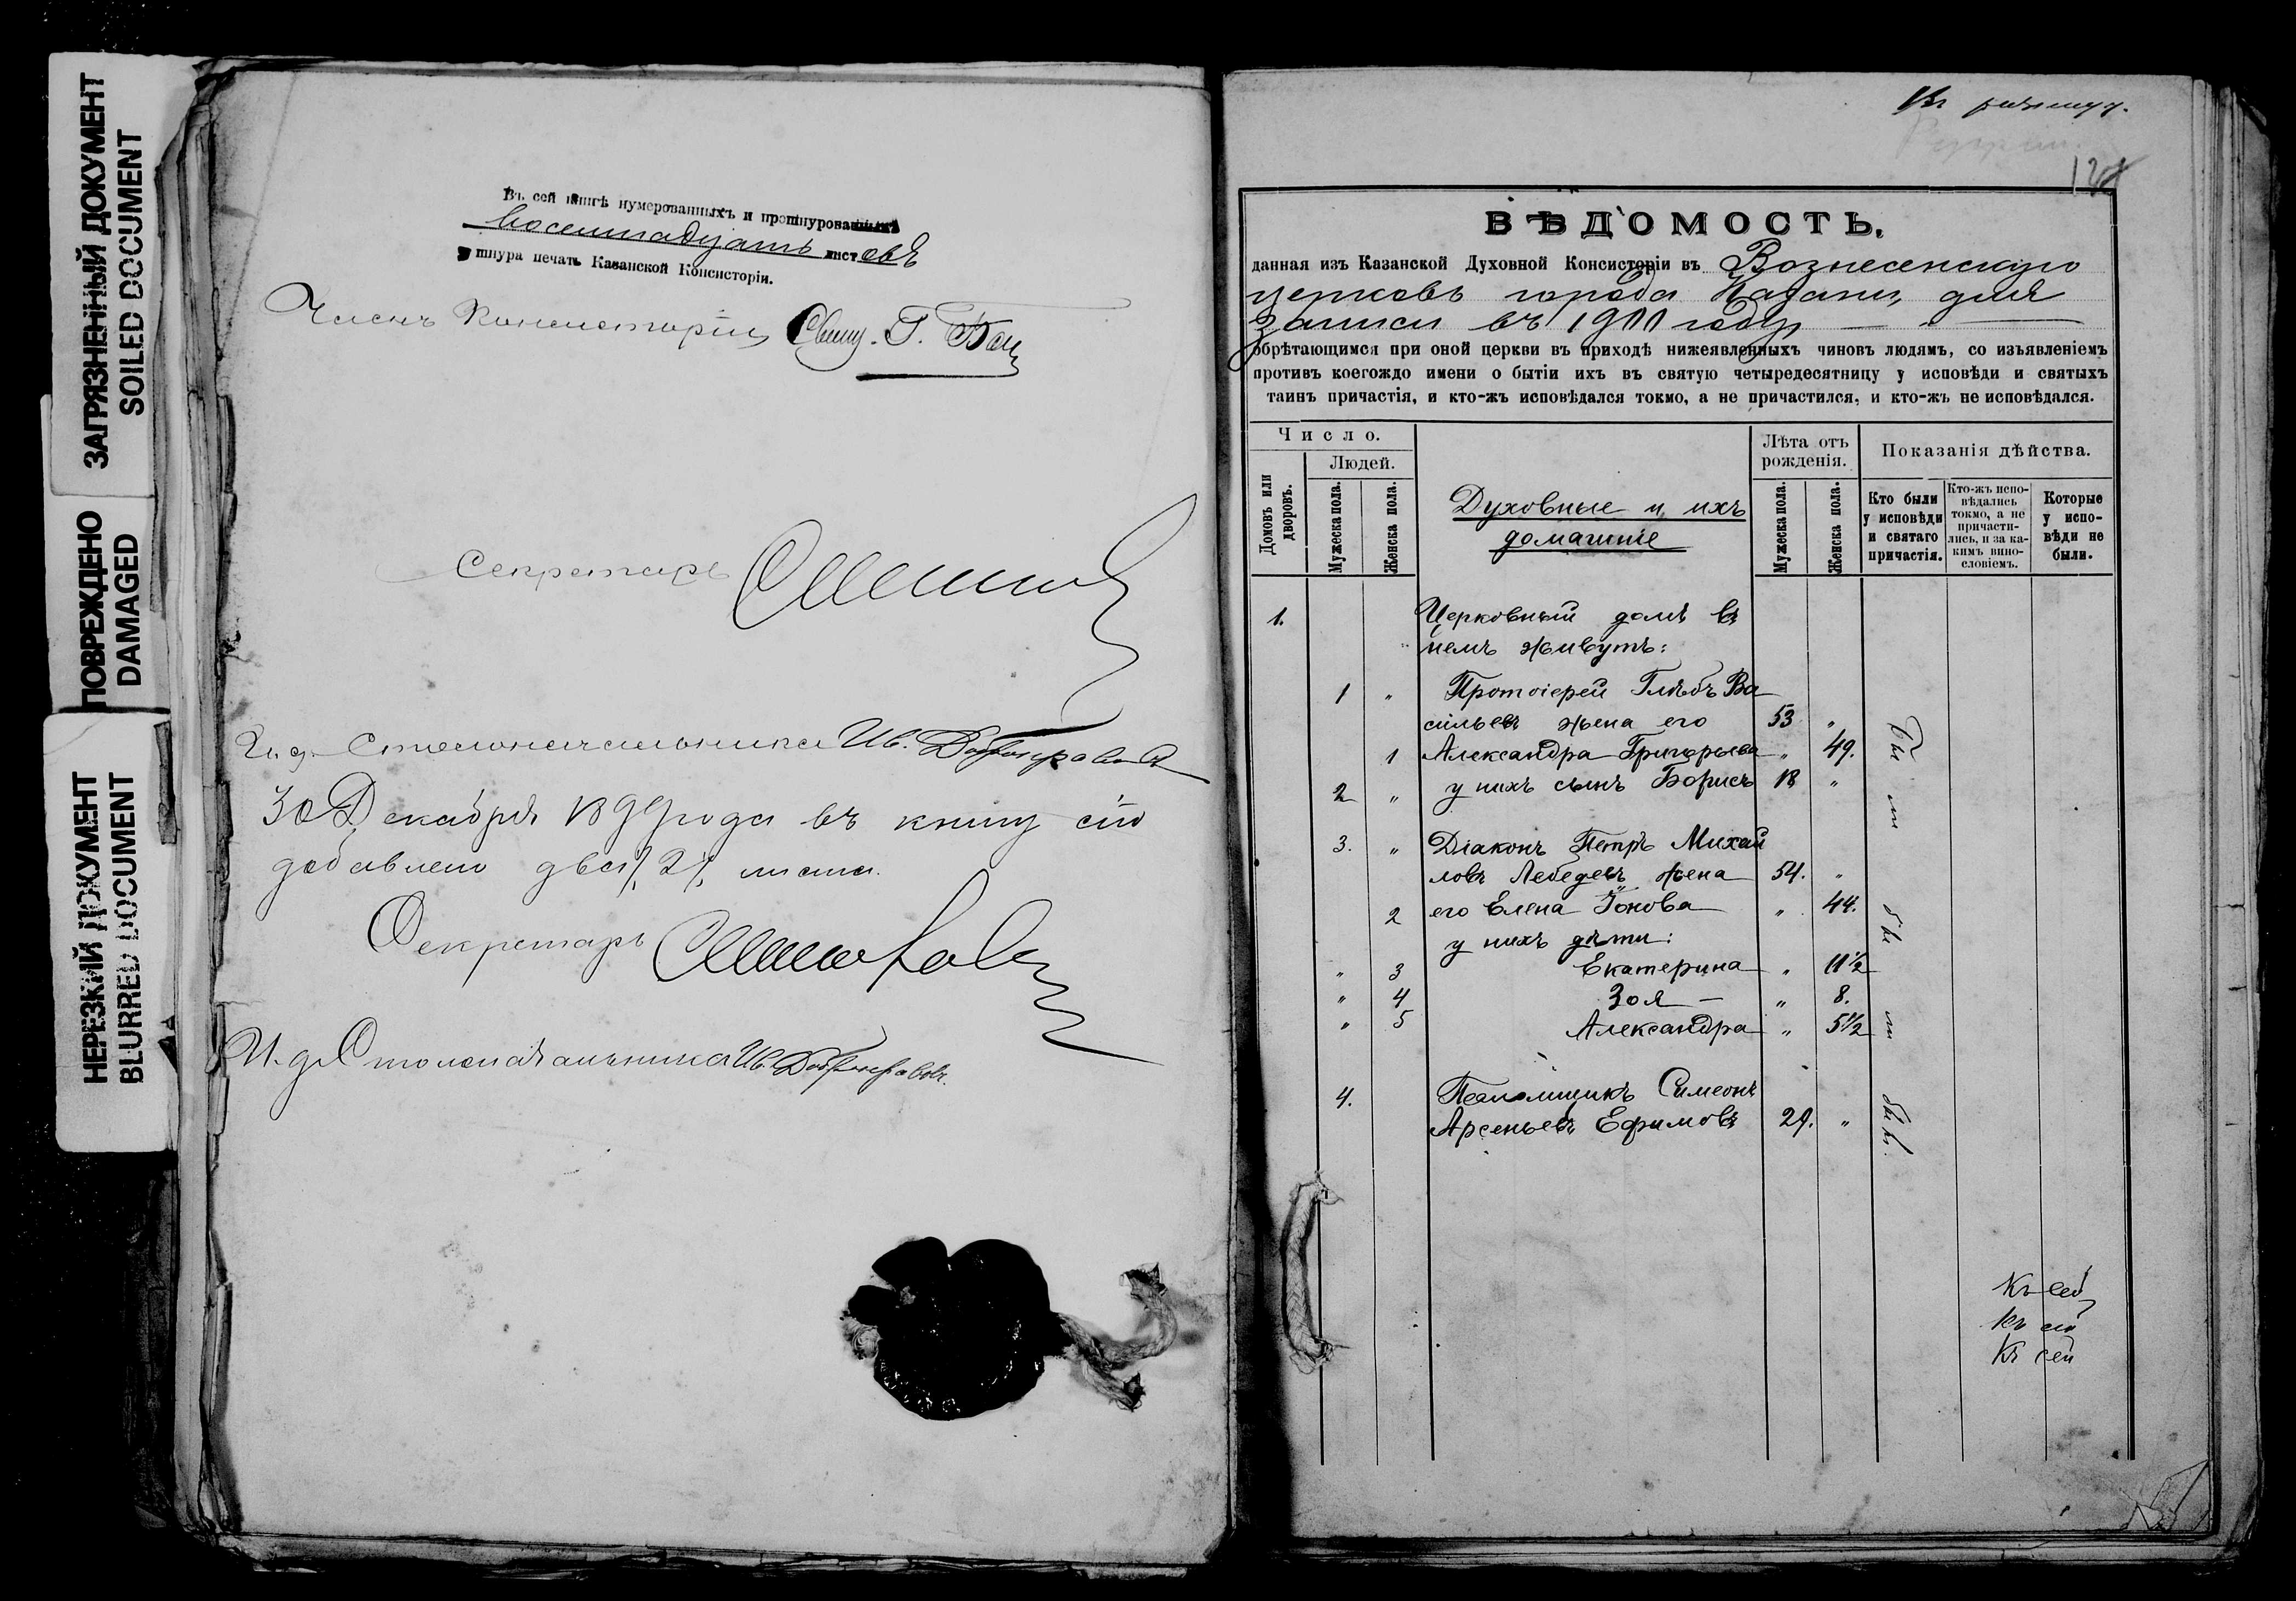 ЗАГРЯЗНЕННЫЙ ДОКУМЕНТ
SOILED DOCUMENT
ПОВРЕЖДЕНО
DAMAGED
НЕРЕЗКИЙ ДОКУМЕНТ
BLURRED DOCUMENT
Въ сей книгѣ нумерованныхъ и прошнурованныхъ
восемнадцать листовъ
шнура печать Казанской Консисторіи.
Членъ Консисторіи Свящ. Г.
Секретарь
И. д. Столоначальника Ив. Добронравовъ
30 Декабря 1899 года въ книгу сію
добавлено два /2/ листа.
Секретарь
И. д. Столоначальника Ив. Добронравовъ.
ВѢДОМОСТЬ,
данная изъ Казанской Духовной Консисторіи въ Вознесенскую
церковь города Казани, для
записи въ 1900 году
обрѣтающимся при оной церкви въ приходѣ нижеявленныхъ чиновъ людямъ, со изъявленіемъ
противъ коегождо имени о бытіи ихъ въ святую четыредесятницу у исповѣди и святыхъ
таинъ причастія, и кто-жъ исповѣдался токмо, а не причастился, и кто-жъ не исповѣдался.
Число.
Людей.
Домовъ или дворовъ.
Мужеска пола.
Женска пола.
Духовные и ихъ
домашніе
Лѣта отъ рожденія.
Мужеска пола.
Женска пола.
Показанія дѣйства.
Кто были у исповѣди и святаго причастія.
Кто-жъ исповѣдались токмо, а не причастились, и за какимъ винословіемъ.
Которые у исповѣди не были.
1. Церковный домъ въ
немъ живутъ:
1 " Протоіерей Глѣбъ Ва
сильевъ жена его 53 "
1 Александра Григорьева " 49.
2 " у нихъ сынъ Борисъ 18 "
3. " Діаконъ Петръ Михай
ловъ Лебедевъ жена 54. "
2 его Елена Іонова " 44.
у нихъ дѣти:
" 3 Екатерина " 11 1/2
" 4 Зоя — " 8.
" 5 Александра " 5 1/2
4. Псаломщикъ Симеонъ
Арсеньевъ Ефимовъ 29. "
Къ сей
Къ сей